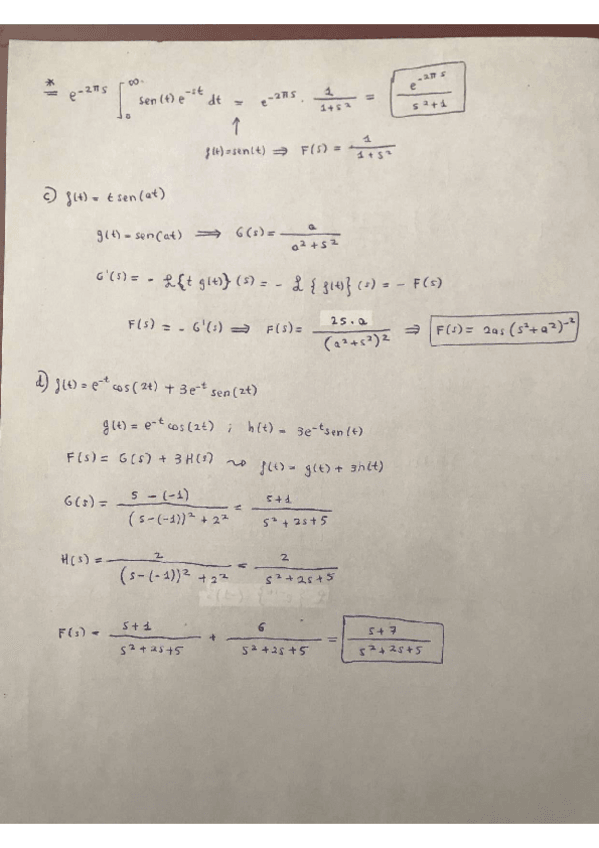 * = e^{-2πs} ∫_0^∞ sen(t) e^{-st} dt = e^{-2πs} · 1/(1+s²) = e^{-2πs}/(s²+1)
↑
f(t)=sen(t) ⇒ F(s) = 1/(1+s²)
c) f(t) = t sen(at)
g(t) = sen(at) ⟹ G(s) = a/(a²+s²)
G'(s) = - ℒ{t g(t)}(s) = - ℒ{f(t)}(s) = - F(s)
F(s) = - G'(s) ⟹ F(s) = 2s·a/(a²+s²)² ⇒ F(s) = 2as(s²+a²)^{-2}
d) f(t) = e^{-t} cos(2t) + 3e^{-t} sen(2t)
g(t) = e^{-t} cos(2t) ; h(t) = 3e^{-t} sen(t)
F(s) = G(s) + 3H(s) ⇝ f(t) = g(t) + 3h(t)
G(s) = (s-(-1))/((s-(-1))² + 2²) = (s+1)/(s²+2s+5)
H(s) = 2/((s-(-1))² + 2²) = 2/(s²+2s+5)
F(s) = (s+1)/(s²+2s+5) + 6/(s²+2s+5) = (s+7)/(s²+2s+5)